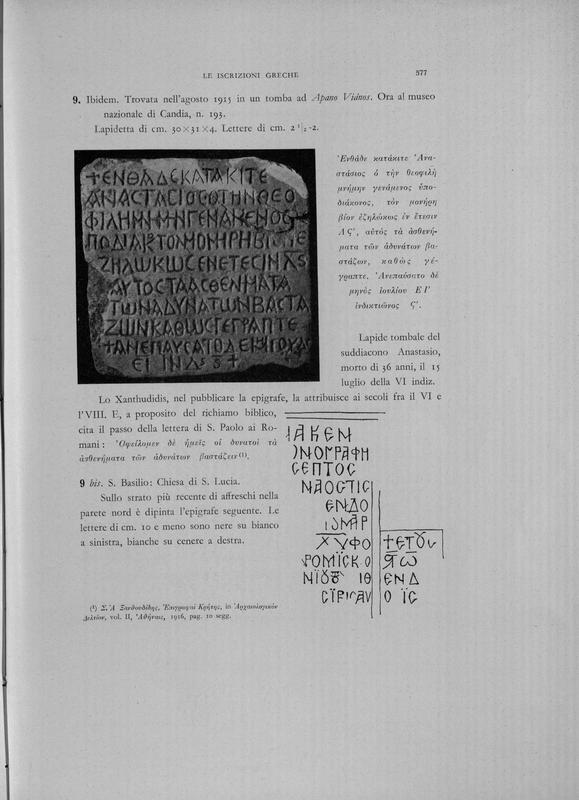 LE ISCRIZIONI GRECHE
577
9. Ibidem. Trovata nell'agosto 1915 in un tomba ad Apano Viános. Ora al museo
nazionale di Candia, n. 193.
Lapidetta di cm. 30×31×4. Lettere di cm. 2 ½-2.
+ΕΝΘΑΔΕΚΑΤΑΚΙΤΕ
ΑΝΑCΤΑCΙΟCΟΤΗΝΘΕΟ
ΤΩΝΑΔΥΝΑΤΩΝΒΑCΤΑ
ΖΩΝΚΑΘΩCΓΕΓΡΑΠΤΕ
Ἐνθάδε κατάκιτε Ἀνα-
στάσιος ὁ τὴν θεοφιλῆ
μνήμην γενάμενος ὑπο-
διάκονος, τὸν μονήρη
βίον ἐζηλώκως ἐν ἔτεσιν
Λϛʹ, αὐτὸς τὰ ἀσθενή-
ματα τῶν ἀδυνάτων βα-
στάζων, καθὼς γέ-
γραπτε. Ἀνεπαύσατο δὲ
μηνὸς Ἰουλίου ΕΙʹ
ἰνδικτιῶνος ϛʹ.
Lapide tombale del
suddiacono Anastasio,
morto di 36 anni, il 15
luglio della VI indiz.
Lo Xanthudidis, nel pubblicare la epigrafe, la attribuisce ai secoli fra il VI e
l'VIII. E, a proposito del richiamo biblico,
cita il passo della lettera di S. Paolo ai Ro-
mani: Ὀφείλομεν δὲ ἡμεῖς οἱ δυνατοὶ τὰ
ἀσθενήματα τῶν ἀδυνάτων βαστάζειν (1).
9 bis. S. Basilio: Chiesa di S. Lucia.
Sullo strato più recente di affreschi nella
parete nord è dipinta l'epigrafe seguente. Le
lettere di cm. 10 e meno sono nere su bianco
a sinistra, bianche su cenere a destra.
CΕΠΤΟC
ΝΑΟCΤΙC
ΕΝΔΟ
ΕΝΔ
(1) Σ. Ἀ Ξανθουδίδης, Ἐπιγραφαὶ Κρήτης, in Ἀρχαιολογικὸν
Δελτίον, vol. II, Ἀθήναις, 1916, pag. 10 segg.